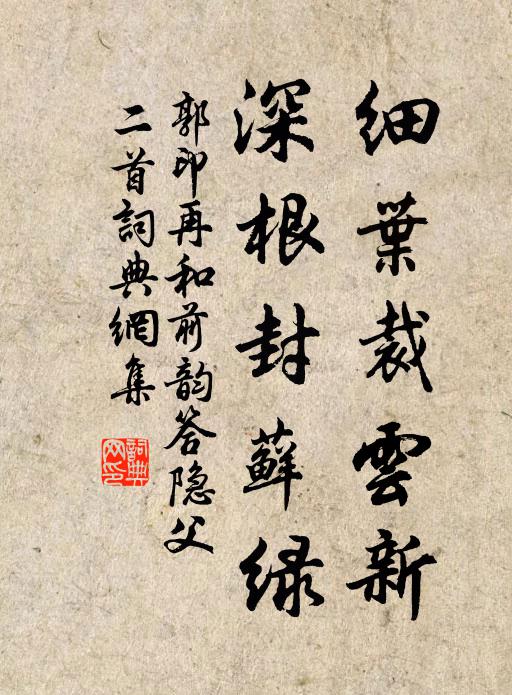 細葉裁雲新
深根封蘚緑
郭印再和前韵答隐父
二首詞典網集
詞典
网印